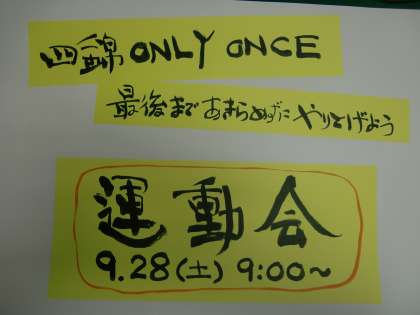 四錦 ONLY ONCE
最後まであきらめずにやりとげよう
運動会
9.28(土) 9:00~